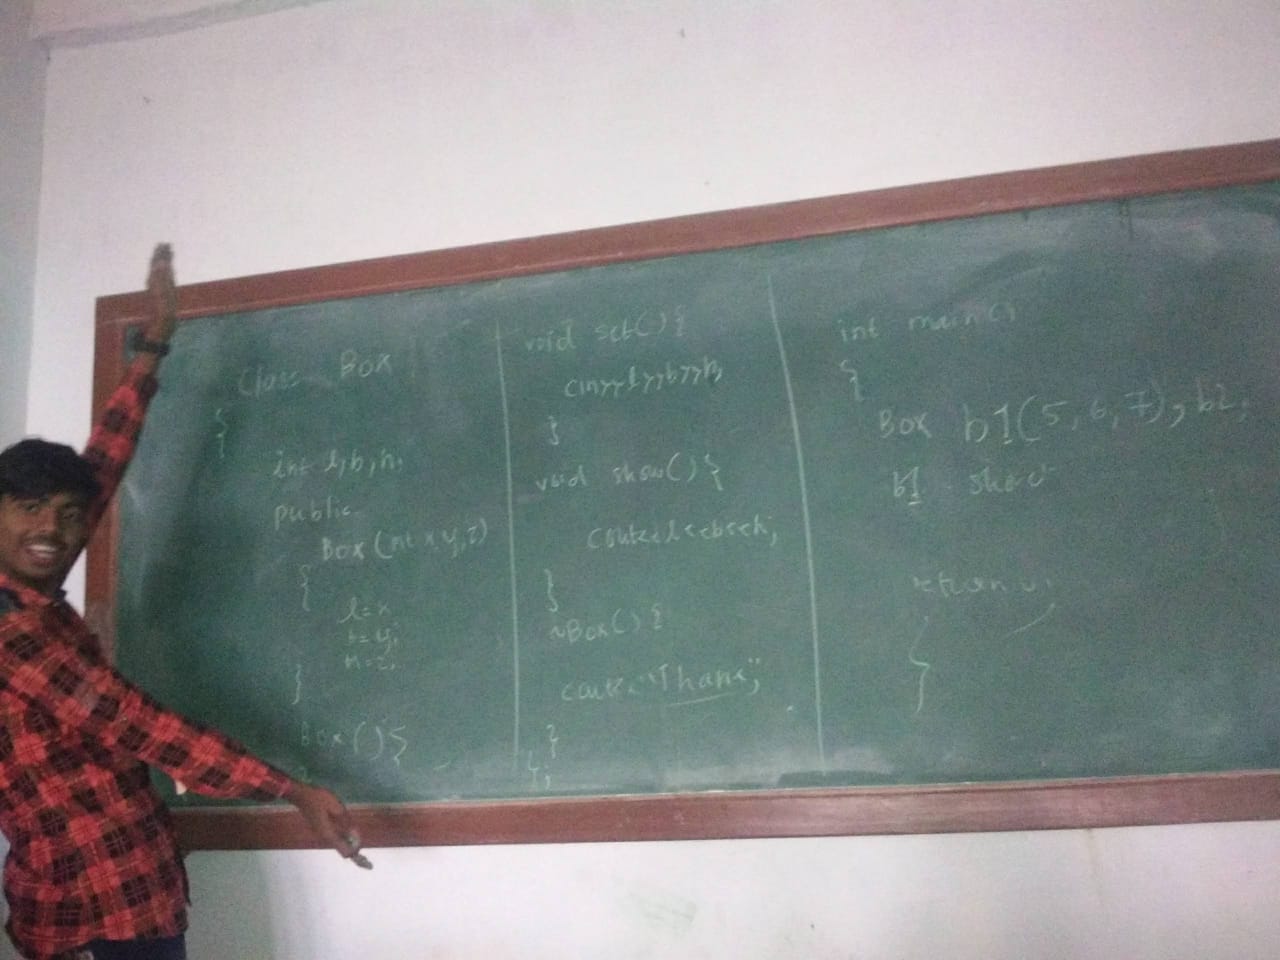 Class Box
{
int l,b,h;
public
Box(int x,y,z)
{
l=x
b=y;
h=z;
}
Box(){
}
void set(){
cin>>l>>b>>h;
}
void show(){
cout<<l<<b<<h;
}
~Box(){
cout<<"Thank";
}
};
int main()
{
Box b1(5,6,7),b2;
b1. show
return 0;
}